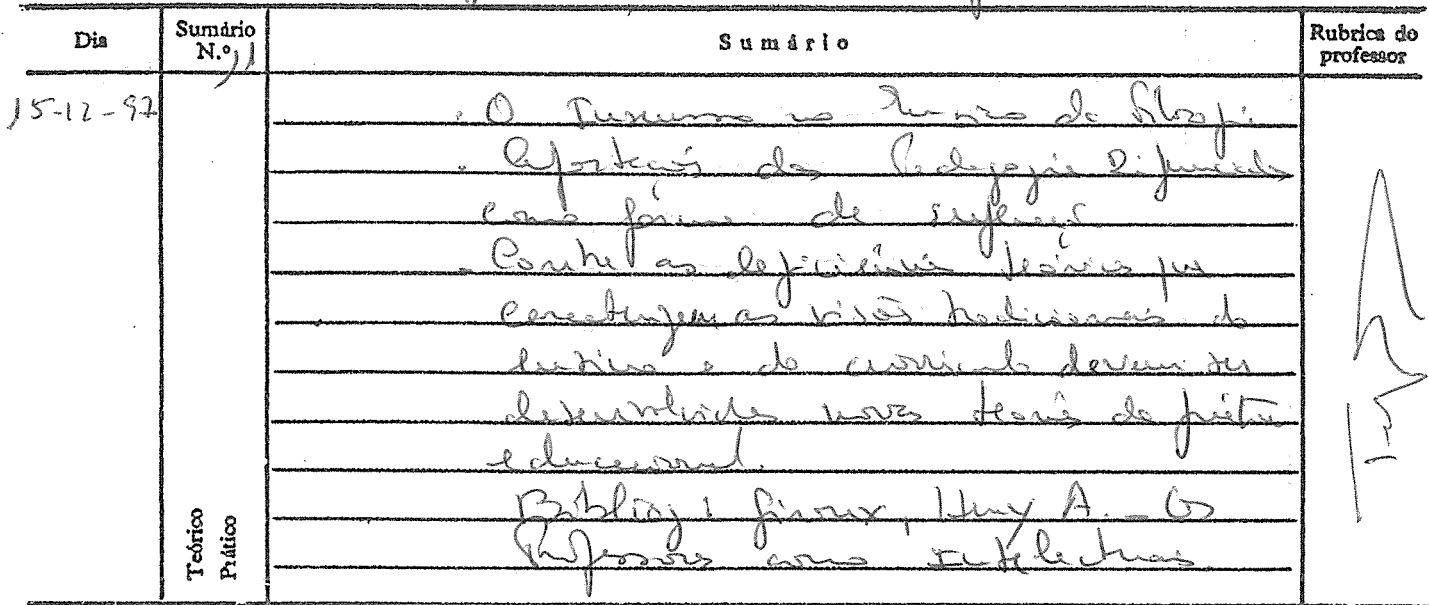 Dia
Sumário N.º 11
Sumário
Rubrica do professor
15-12-97
. O no Ensino da Filosofia
. da Pedagogia Diferenciada
como forma de
. Contra as deficiências teóricas que
caracterizam as visões tradicionais do
ensino e do currículo devem ser
desenvolvidas novas teorias da prática
educacional.
Bibliog: Giroux, Henry A. - Os
Professores como Intelectuais.
Teórico
Prático